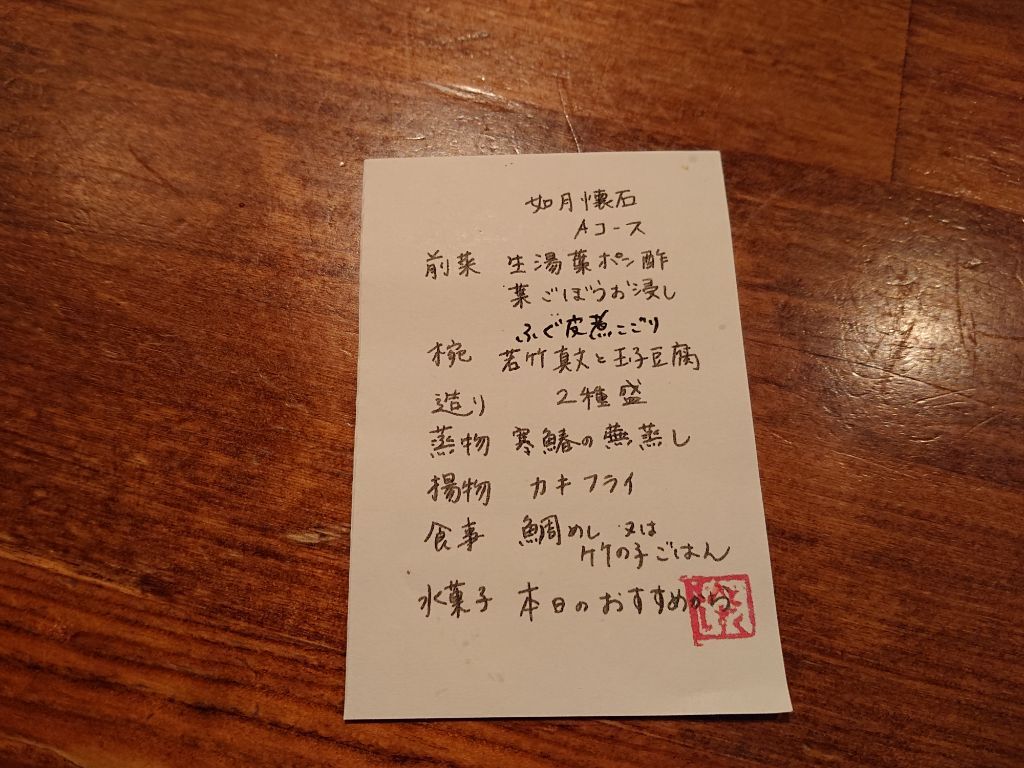 如月懐石
Aコース
前菜 生湯葉ポン酢
葉ごぼうお浸し
ふぐ皮煮こごり
椀 若竹真丈と玉子豆腐
造り 2種盛
蒸物 寒鰆の蕪蒸し
揚物 カキフライ
食事 鯛めし 又は
竹の子ごはん
水菓子 本日のおすすめから